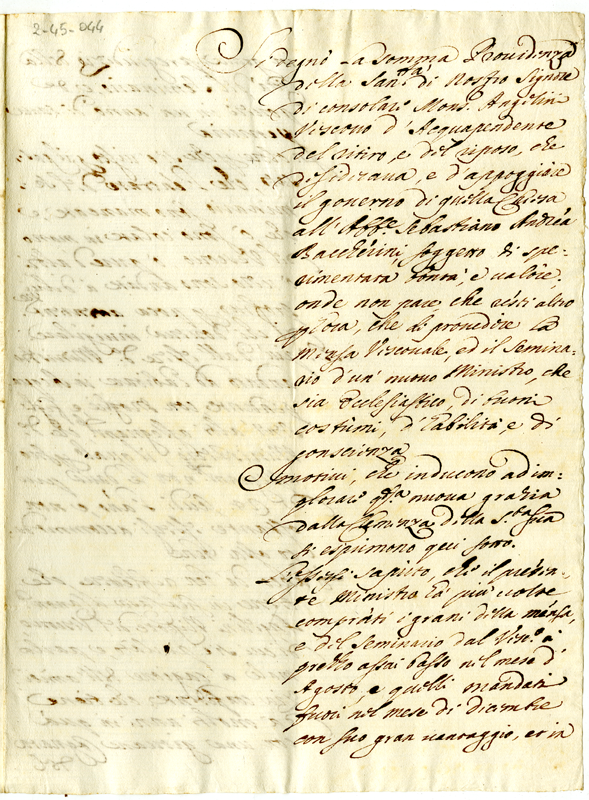 2-45-044
Si degnò la somma Providenza
della San.tà di Nostro Signore
di consolare Mons. Angelini
Vescovo d'Acquapendente
del ritiro, e del riposo, che
desiderava, e d'appoggiare
il governo di quella Chiesa
all'Abb.e Sebastiano Andrea
Baccherini, soggetto di spe-
rimentata bontà, e valore,
onde non pare, che resti altro
che di provedere la
Mensa Vescovale, ed il Semina-
rio d'un nuovo Ministro, che
sia Ecclesiastico di buoni
costumi, d'abilità, e di
conscienza
I motivi, che inducono ad im-
plorare q.sta nuova grazia
dalla Clemenza della S.tà Sua
si esprimono qui sotto.
sapersi, che il presen-
te Ministro ha più volte
comprati i grani della mensa,
e del Seminario dal Vesc.o a
prezzo assai basso nel mese d'
Agosto, e quelli mandati
fuori nel mese di dicembre
con suo gran vantaggio, et in